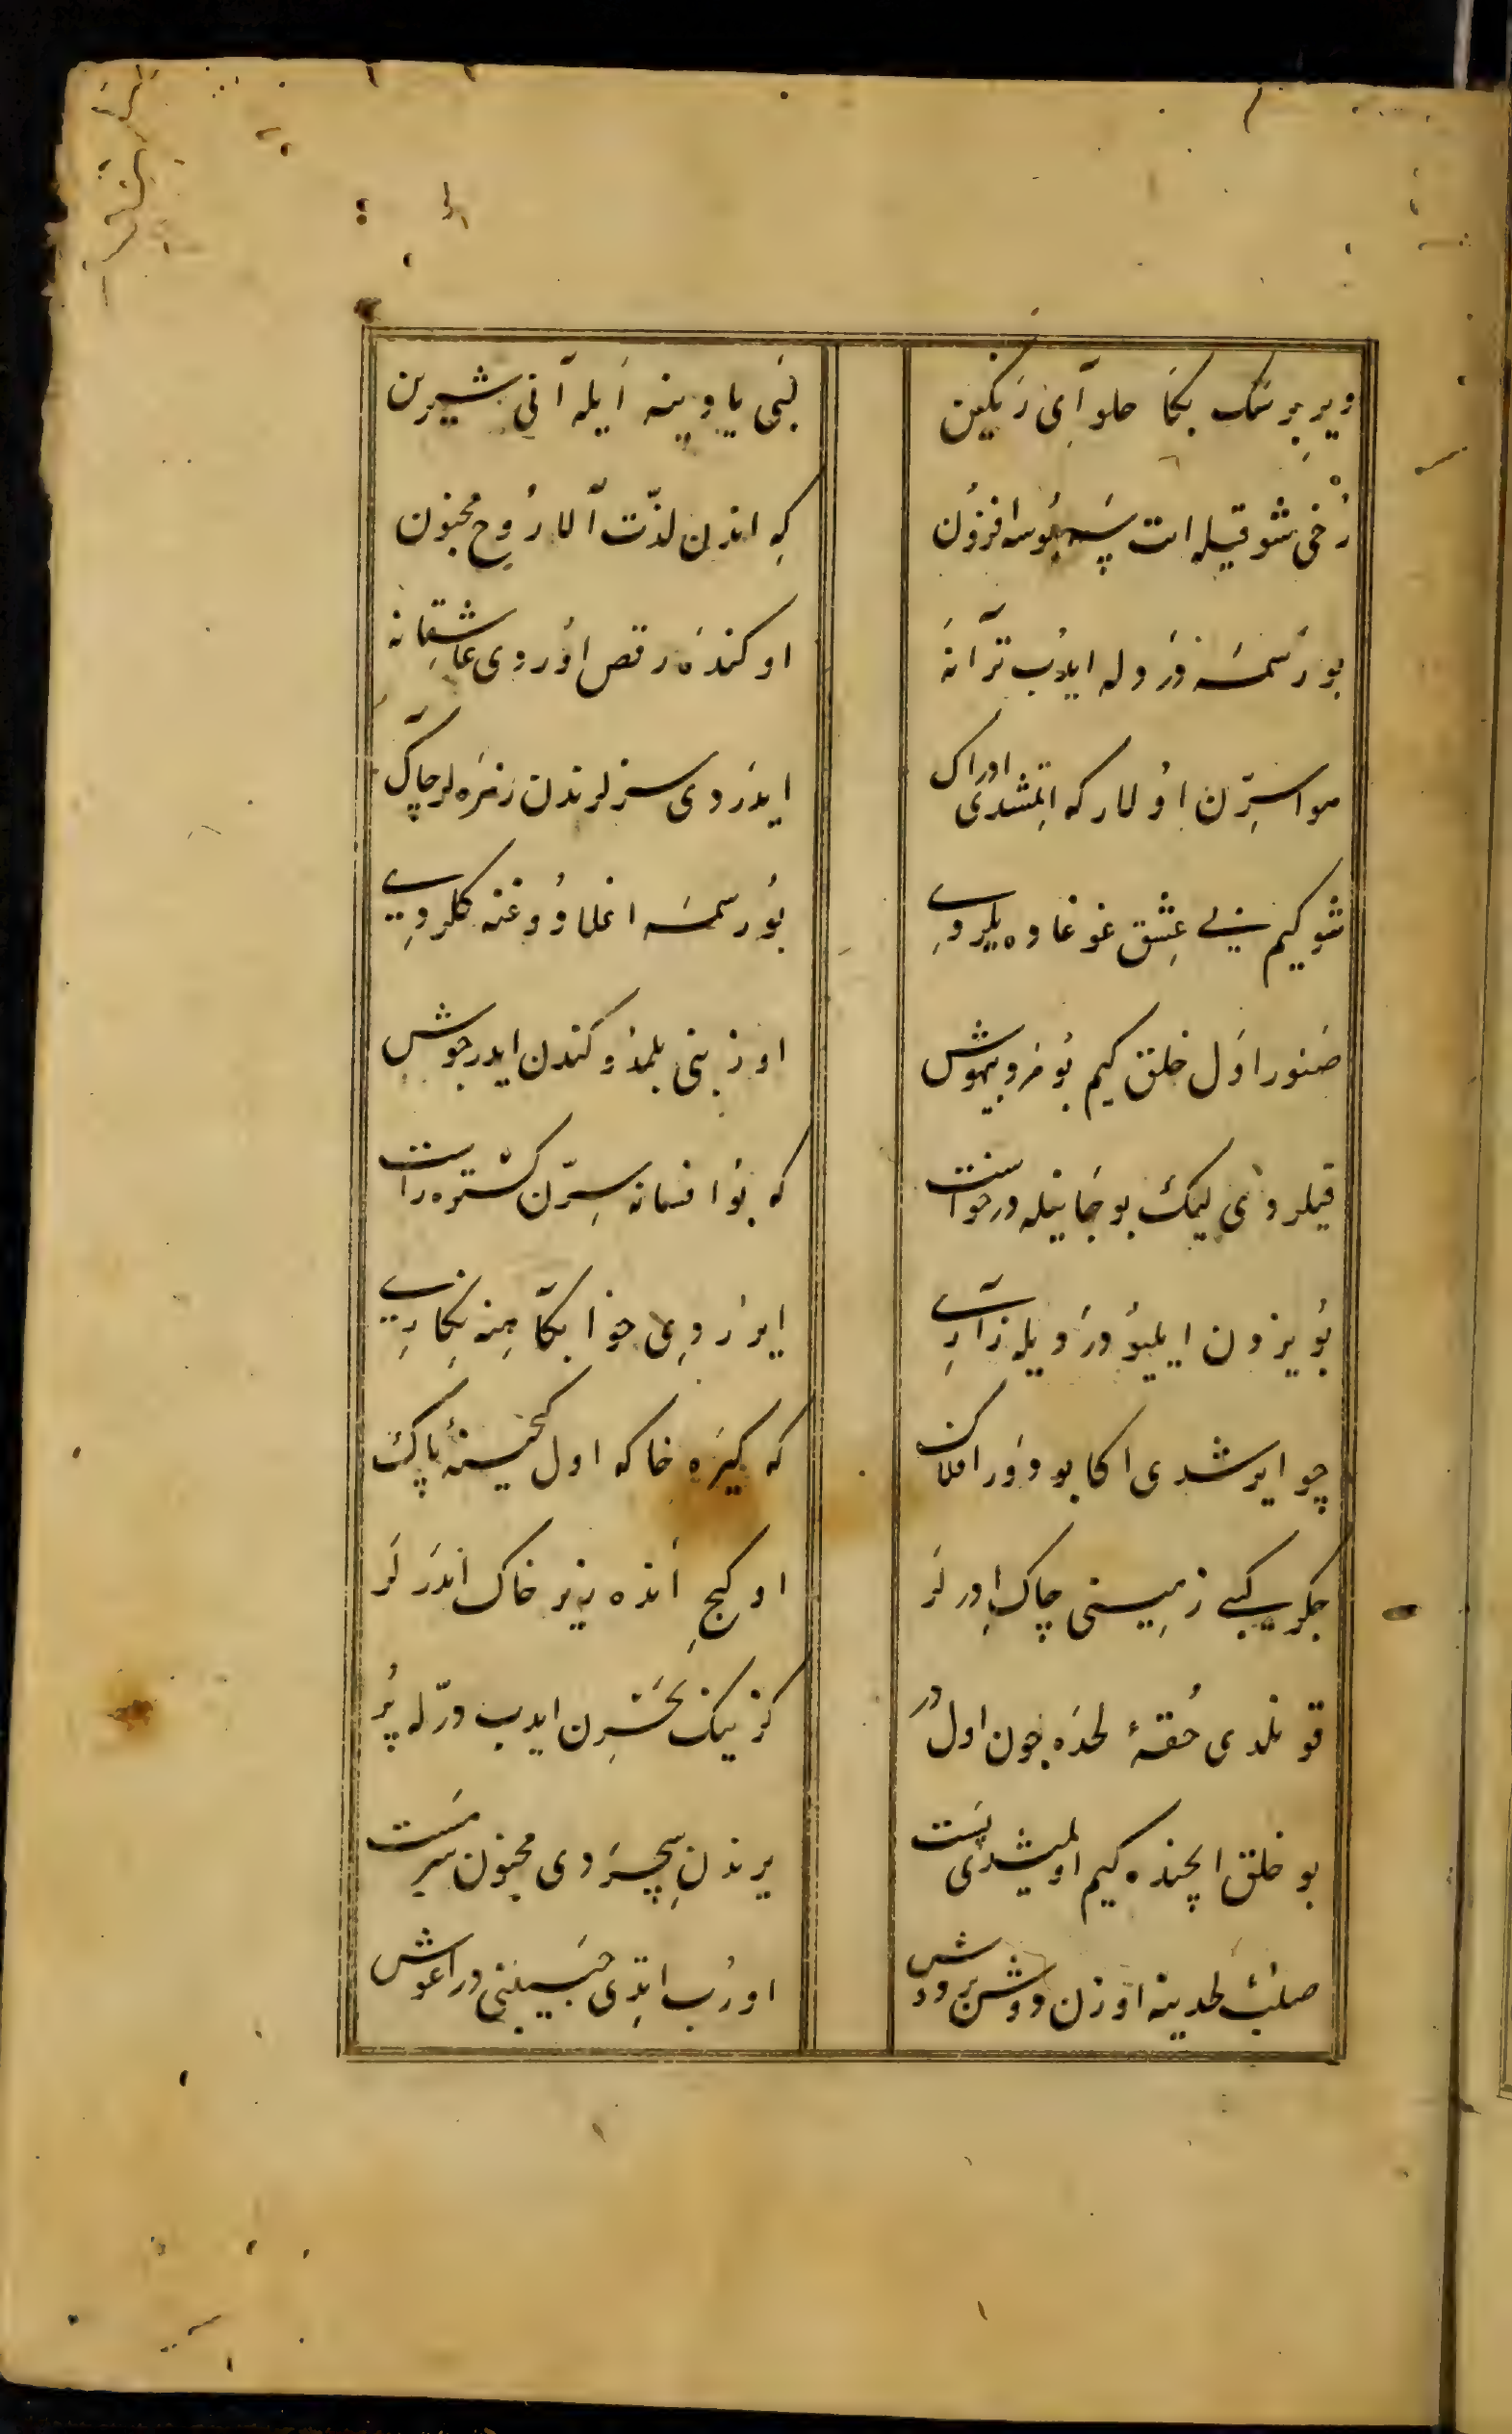 ویررسك بكا حلوآی رنكین لبی یادینه ایله آنی شیرین
رُخی شوقیله ات پس بُوسه افزون كِه اندن لذّت آلا رُوح مجنون
بو رسمه دردله ایدُب ترانه اوكندَه رقص اوُردی عاشقانه
هوا سِرّن اوُلار كه اتمِشدی ادراك ایدَردی سزلرندن زهَره لر چاك
شو كیم نی عِشق غوغاده یلردِی بُو رسمه اغلادُوغنه كلردِی
صَنور اوَل خلق كیم بُو خردبیهوش اوزینی بلمدُوكندن ایدر جوش
قیلردی لیك بو جانیله درخواست كه بُو افسانه سِرّن كُستره راست
بُو یزدن ایلیوُ دَردیله زآرِی ایررَدِی خوابكآهِنه نِكارِی
چو ایرشدی اكا بو دَور افلاك كه كیرَه خاكه اول كنجینۀ پاك
جكر كبی زمِینی چاك اِدرلَر او كنجِ اَنده زیر خاك اندَرلَر
قونلدی حُقۀ لحدَه چون اول دُر كوزینك بحَرِن ایدب درّله پُر
بو خلق ایچنده كیم اولمیشدی پَست یرندنِ سِچرَدی مجنون سرمَست
صلنُب لحدینه اوزن دوش بردوش اورُب ایتدِی حَبیبنی در اغوش